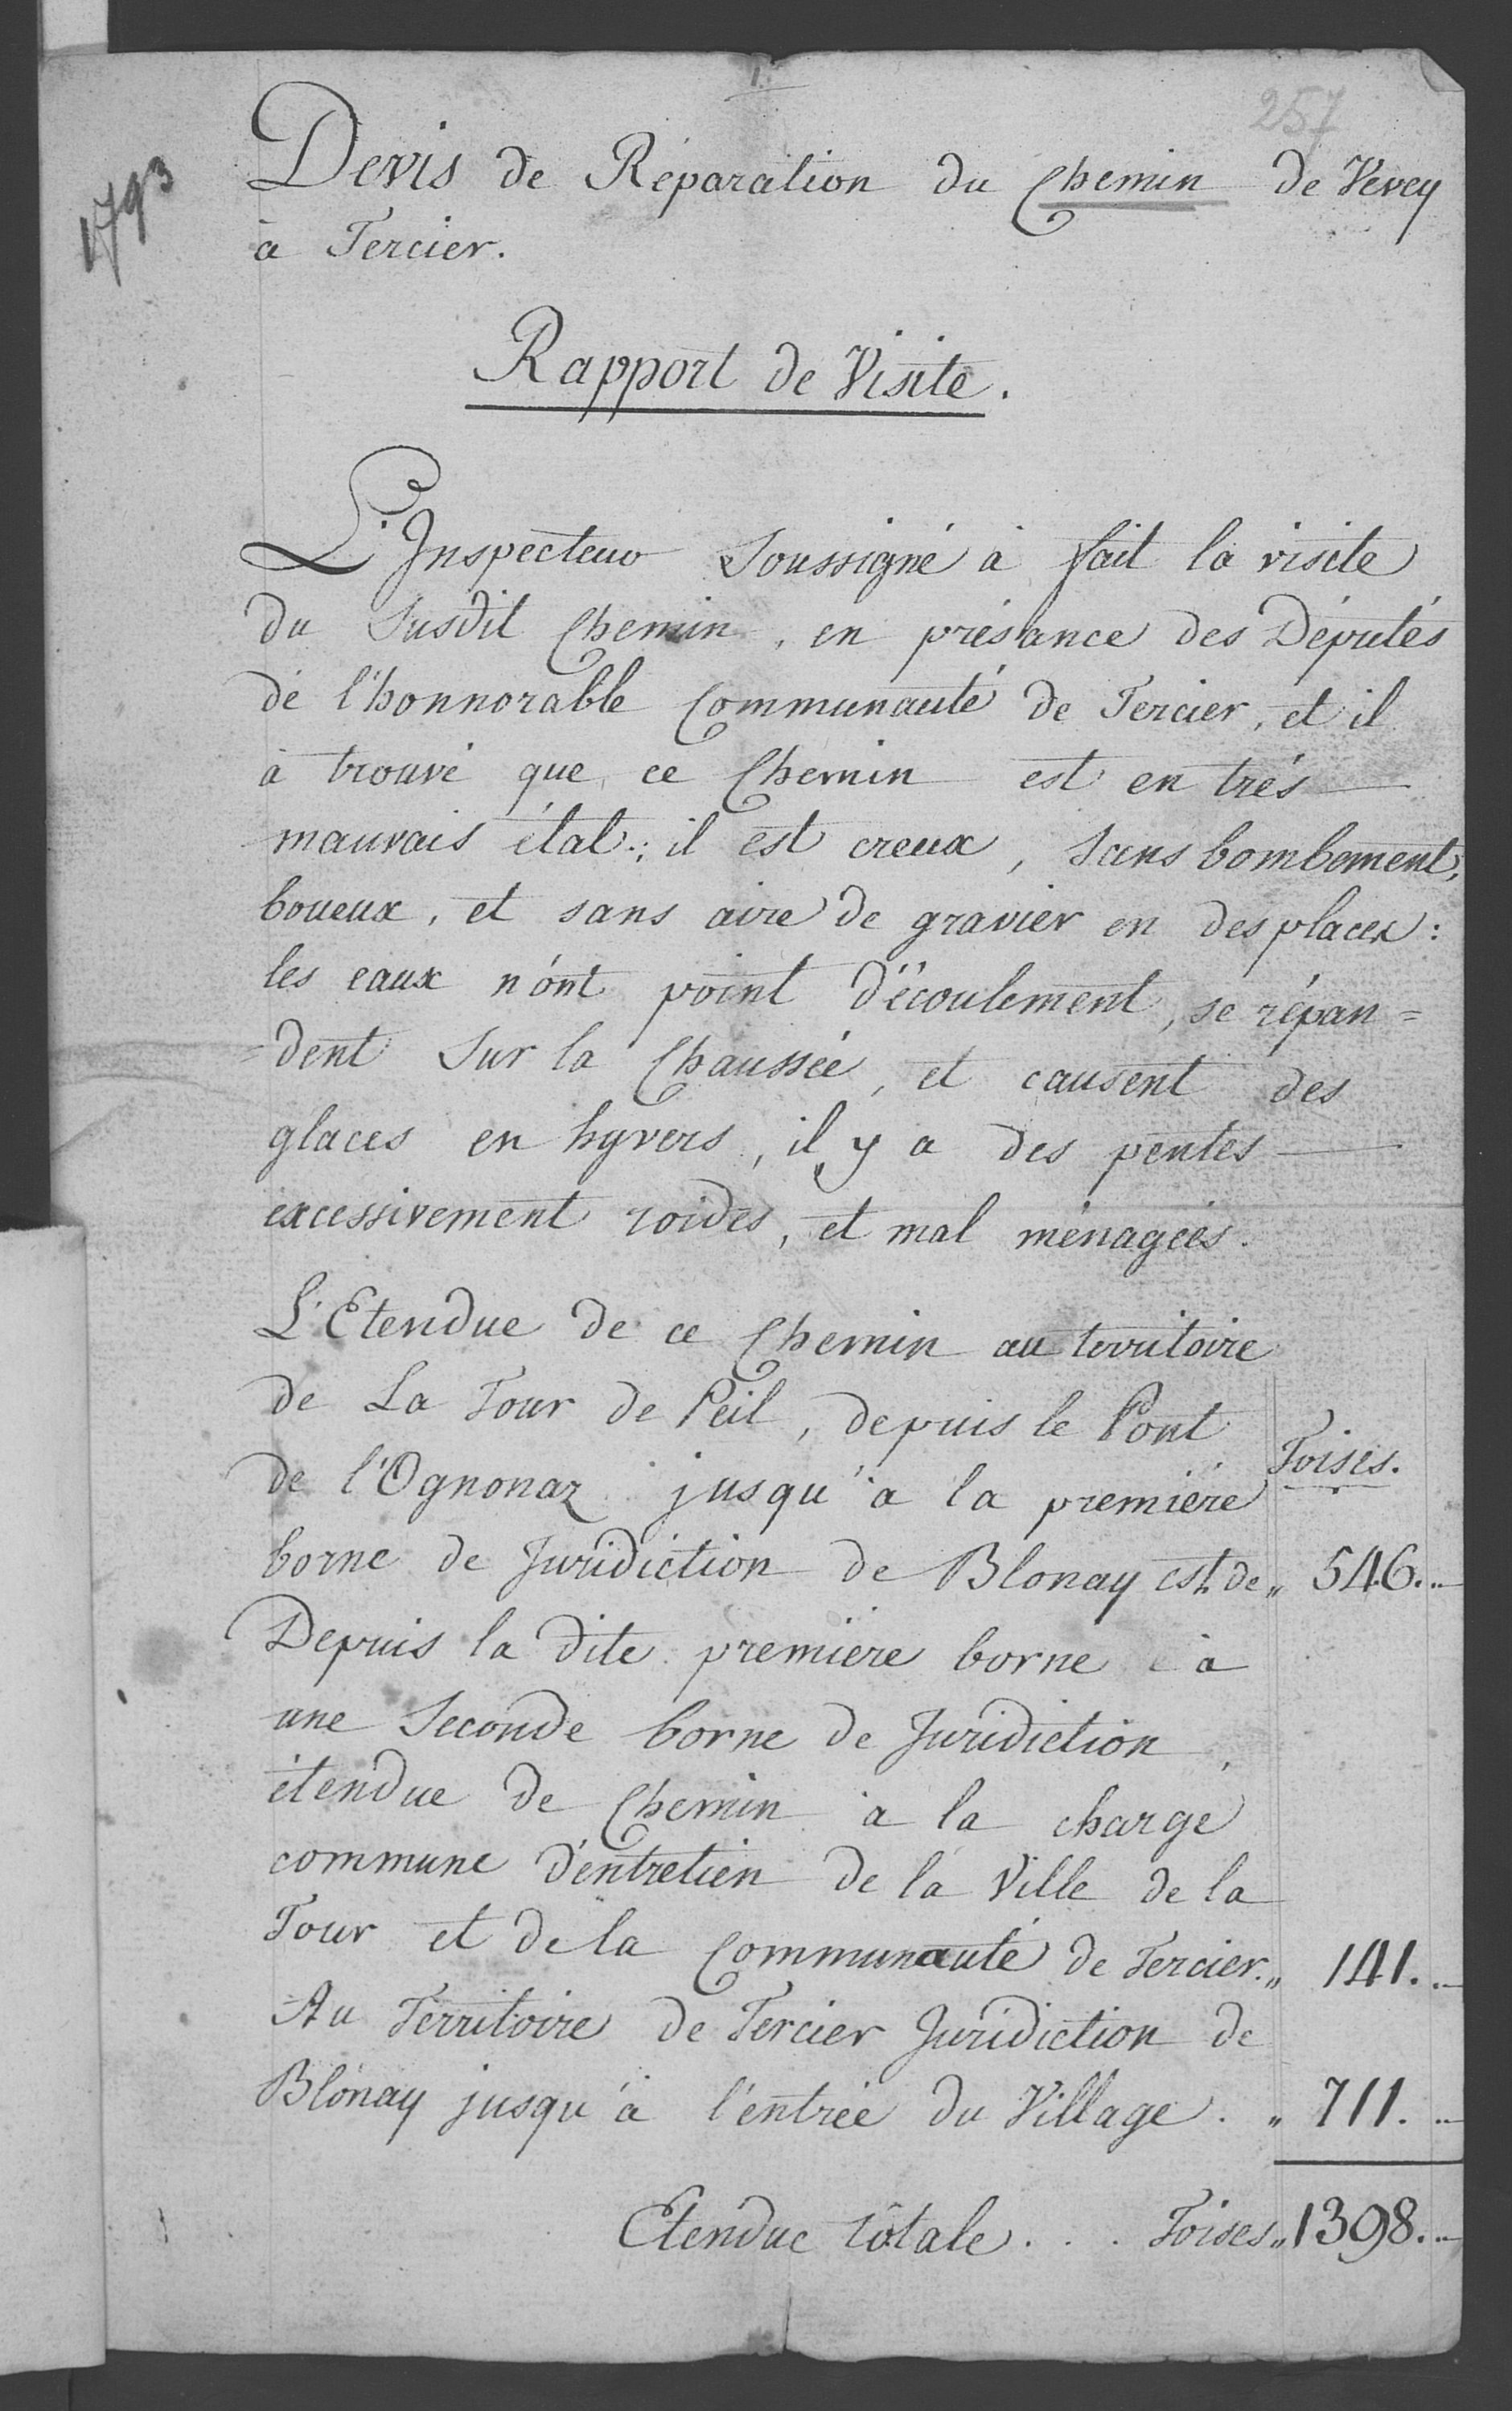 1.
257
1793
Devis de Réparation du Chemin de Vevey
à Tercier.
Rapport de Visite.
L'Inspecteur Soussigné à fait la visite
du Susdit Chemin, en présance des Députés
de l'honnorable Communauté de Tercier, et il
à trouvé que ce Chemin est en trés
mauvais état; il est creux, sans bombement,
boueux, et sans aire de gravier en des places:
les eaux n'ont point d'écoulement, se répan=
=dent sur la Chaussée, et causent des
glaces en hyvers, il y a des pentes
excessivement roides, et mal ménagées.
L'Etendue de ce Chemin au territoire
de La Tour de Peil, depuis le Pont
de l'Ognonaz jusqu'à la premiére
Toises.
borne de Juridiction de Blonay est de „ 546. „
Depuis la dite premiére borne à
une Seconde borne de Juridiction,
étendue de Chemin à la charge
commune d'entretien de la Ville de la
Tour et de la Communauté de Tercier. „ 141. „
Au Territoire de Tercier Juridiction de
Blonay jusqu'à l'entrée du Village. „ 711. „
Etendue totale . . . Toises „ 1398. „